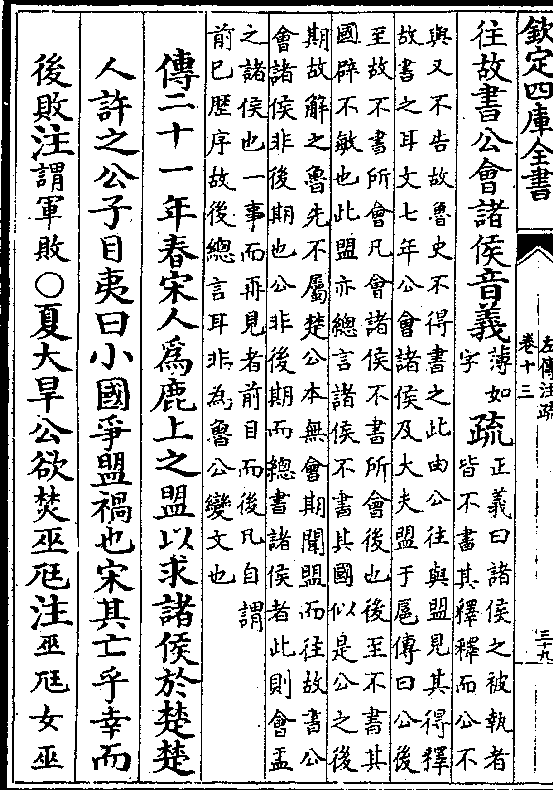 欽定四庫全書
左傳注疏
卷十三
三十九
往故書公會諸侯音義薄如字疏正義曰諸侯之被執者
皆不書其釋釋而公不
與又不告故魯史不得書之此由公往與盟見其得釋
故書之耳文七年公會諸侯及大夫盟于扈傳曰公後
至故不書所會凡會諸侯不書所會後也後至不書其
國辟不敏也此盟亦總言諸侯不書其國似是公之後
期故解之魯先不屬楚公本無會期聞盟而往故書公
會諸侯非後期也公非後期而總書諸侯者此則會盂
之諸侯也一事而再見者前目而後凡自謂
前已歴序故後總言耳非為魯公變文也
傳二十一年春宋人爲鹿上之盟以求諸侯於楚楚
人許之公子目夷曰小國爭盟禍也宋其亡乎幸而
後敗注謂軍敗○夏大旱公欲焚巫尫注巫尫女巫